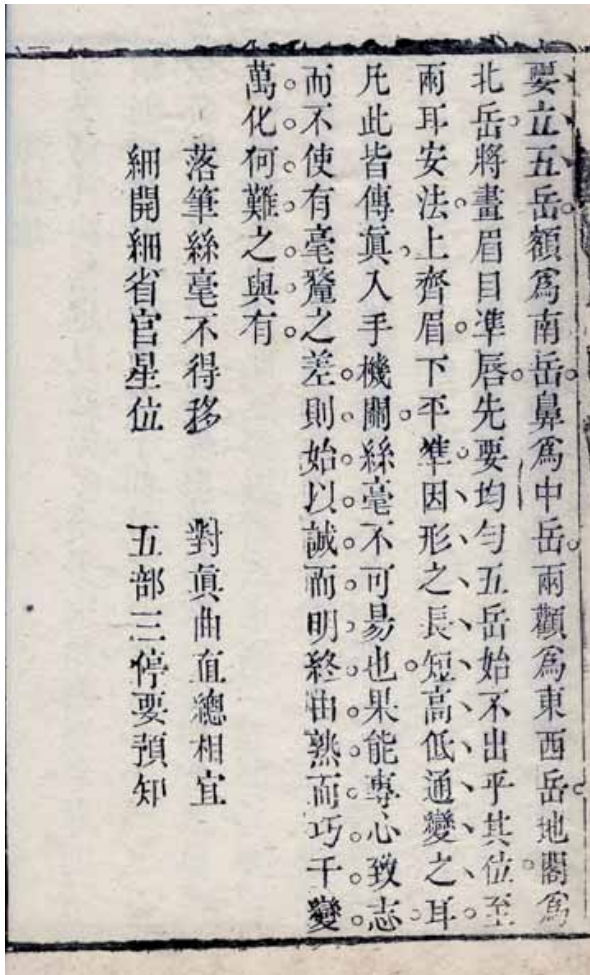 要立五岳額爲南岳鼻爲中岳兩顴爲東西岳地閣爲
北岳將畫眉目準唇先要均勻五岳始不出乎其位至
兩耳安法上齊眉下平準因形之長短高低通變之耳
凡此皆傳眞入手機關絲毫不可易也果能專心致志
而不使有毫釐之差則始以誠而明終由熟而巧千變
萬化何難之與有
落筆絲毫不得移　對眞曲直總相宜
細開細省官星位　五部三停要預知